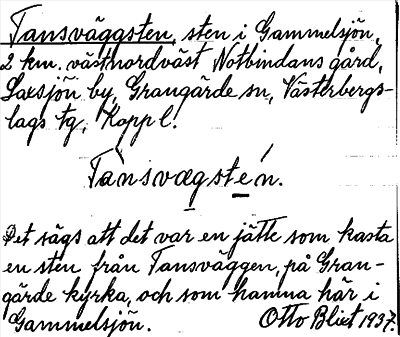 Tansväggsten, sten i Gammelsjön,
2 km. västnordväst Notbindans gård,
Laxsjön by, Grangärde sn, Västerbergs-
lags tg, Koppl.
Tànsvægstén.
Det sägs att det var en jätte som kasta
en sten från Tansväggen, på Gran-
gärde kyrka, och som hamna här i
Gammelsjön. Otto Blixt 1937.